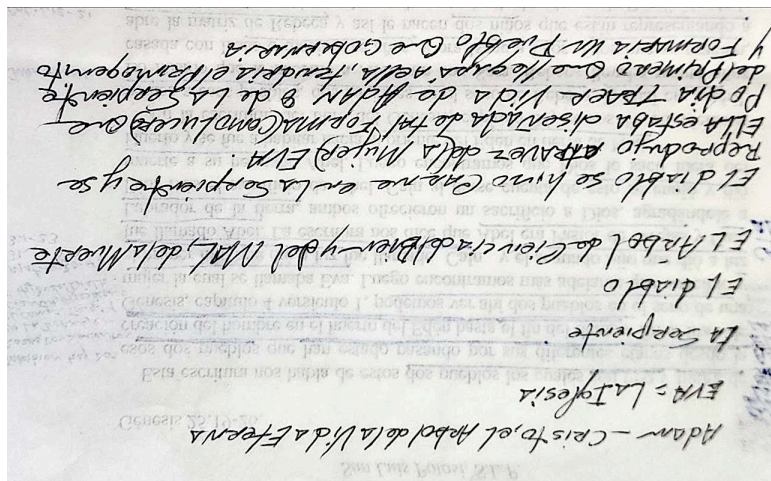 Adam - Cristo, el Arbol de la Vida Eterna
EVA = La Iglesia
La Serpiente
El diablo
EL Arbol de Ciencia del Bien y del MAL, de la Muerte
El diablo se hizo Carne en la Serpiente y se
Reprodujo ATRAVEZ de la Mujer) EVA
ELLA estaba diseñada de tal forma (como Lucer) Que
Podia TRAER Vida de ADAN o de La Serpiente
del Primero Que llegara a ella, Tendria el Primogenito
Y Formaria un Pueblo Que Gobernaria